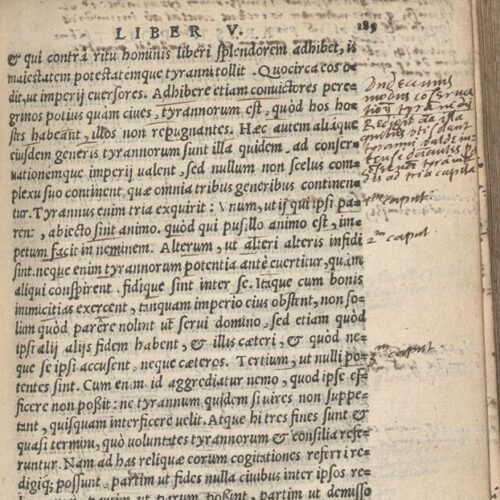 LIBER V. 189
& qui contra ritu hominis liberi splendorem adhibet, is
maiestatem potestatemque tyranni tollit. Quocirca eos o-
dit, ut imperij euersores. Adhibere etiam conuictores pere-
grinos potius quam ciues, tyrannorum est, quòd hos ho-
stes habeant, illos non repugnantes. Haec autem aliáque
eiusdem generis tyrannorum sunt illa quidem, ad conser-
uationemque imperij ualent, sed nullum non scelus com-
plexu suo continent, quæ omnia tribus generibus continen-
tur. Tyrannus enim tria exquirit: Vnum, ut ij qui ipsi pa-
ren:, abiecto sint animo. quòd qui pusillo animo est, im-
petum facit in neminem. Alterum, ut alteri alteris infidi
sint. neque enim tyrannorum potentia antè euertitur, quàm
aliqui conspirent, fidique sint inter se. Itaque cum bonis
inimicitias exercent, tanquam imperio eius obstent, non so-
lùm quòd parère nolint ut serui domino, sed etiam quòd
ipsi alij alijs fidem habent, & illis cæteri, & quòd ne-
que se ipsi accusent, neque cæteros. Tertium, ut nulli po-
tentes sint. Cum enim id aggrediatur nemo, quod ipse ef-
ficere non poßit: ne tyrannum quidem si uires non suppe-
tant, quisquam interficere uelit. Atque hi tres fines sunt &
quasi termini, quò uoluntates tyrannorum & consilia refe-
runtur. Nam ad has reliquæ eorum cogitationes referri re-
digiq; possunt, partim ut fides nulla ciuibus inter ipsos re-
ut parum poßint, partim ut demisso
tyranni
ad tria capita
1m caput.
2m caput.
3m caput